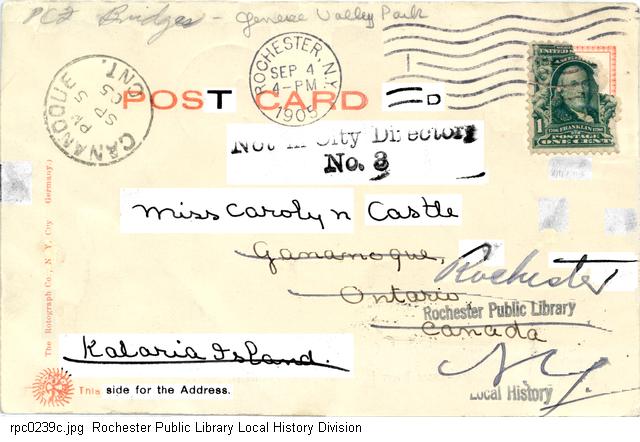 PC2 Bridges - Genesee Valley Park
ROCHESTER, N.Y.
SEP 4
4-PM
1905
GANANOQUE
ONT.
PM
SP 5
05
POST CARD
D
UNITED STATES
FRANKLIN
POSTAGE
1 ONE CENT
Not in City Directory
No. 3
Miss Carolyn Castle
Gananoque,
Rochester
Ontario
Rochester Public Library
Canada
Kalaria Island.
N.Y.
Local History
The Rotograph Co., N. Y. City Germany.)
This side for the Address.
rpc0239c.jpg Rochester Public Library Local History Division